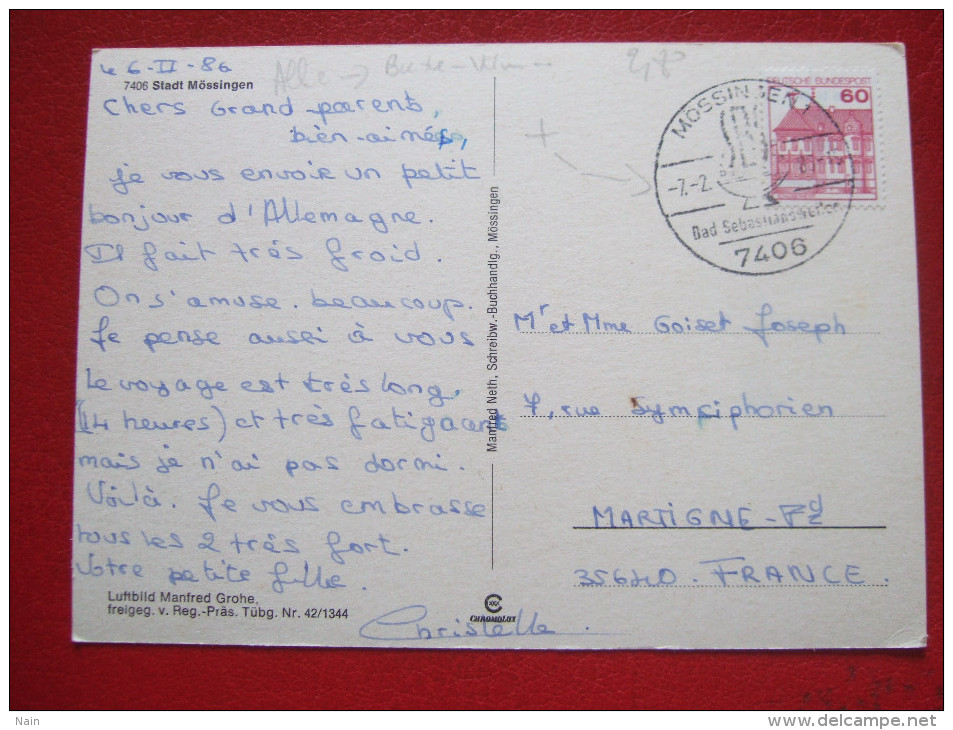 le 6-II-86
7406 Stadt Mössingen
Chers Grand-parents,
bien-aimés,
je vous envoie un petit
bonjour d'Allemagne.
Il fait très froid.
On s'amuse. beaucoup.
Je pense aussi à vous
Le voyage est très long.
(14 heures) et très fatigant
mais je n'ai pas dormi.
Voilà. Je vous embrasse
tous les 2 très fort.
Votre petite fille.
Christelle.
Luftbild Manfred Grohe,
freigeg. v. Reg.-Präs. Tübg. Nr. 42/1344
Manfred Neth, Schreibw.-Buchhandlg., Mössingen
CHROMOLUX
2,80
DEUTSCHE BUNDESPOST
60
MÖSSINGEN 1
-7.-2.
Bad Sebastiansweiler
7406
Mr et Mme Goiset Joseph
7, rue Symphorien
MARTIGNE-Fd
35640. FRANCE.
Nain
www.delcampe.net